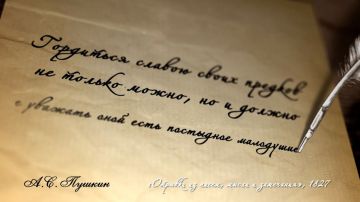 Гордиться славою своих предков
не только можно, но и должно
е уважать оной есть постыдное малодушие
А.С. Пушкин
Отрывки из писем, мысли и замечания, 1827